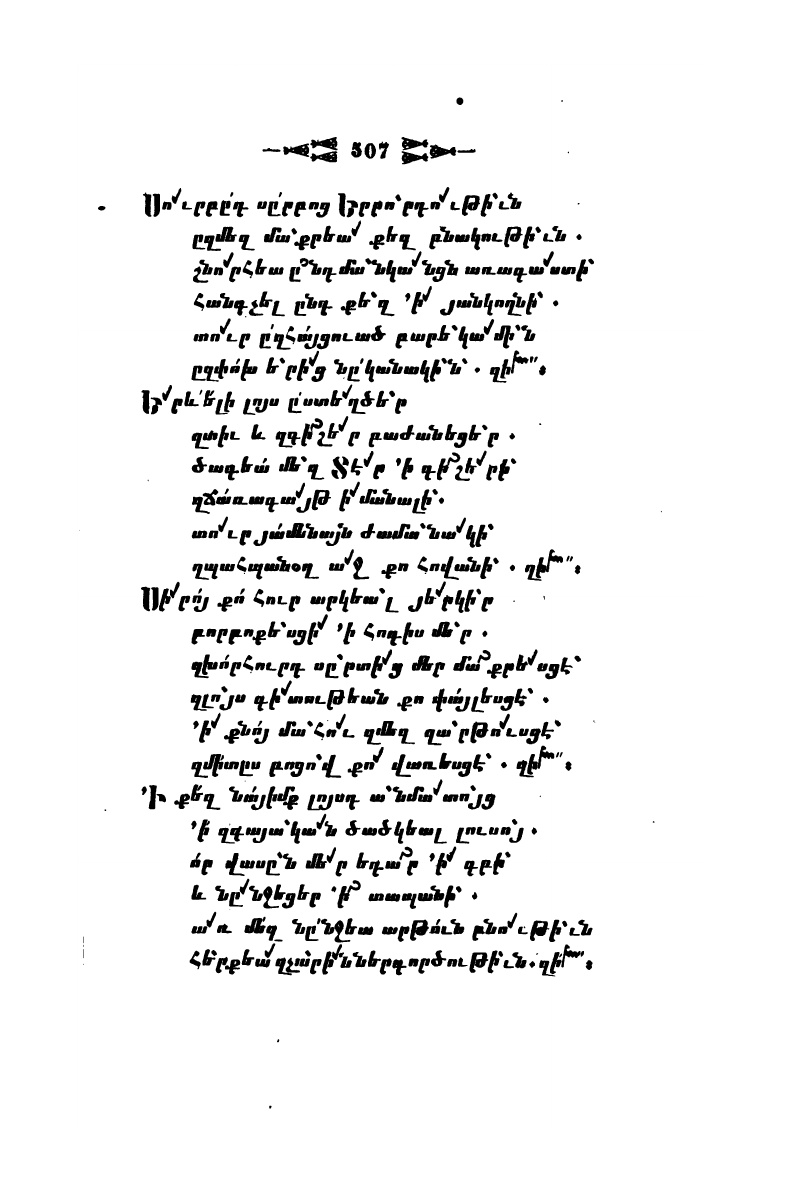 507
Սո՛ւրբըդ սըրբոց Երրո՝րդո՛ւթի՝ւն
ըզմեզ մա՝քրեա՛ քեզ բնակութի՝ւն .
շնո՛րհեա ընդ մա՝նկա՛նցն առագա՛ստի՝
հանգչել ընդ քե՝զ ՚ի՛ յանկողնի՝ .
տո՛ւր ըղհայցուած բարե՝կա՛մի՝ն
ըզփոխ ե՝րի՛ց նըկանակի՝ն՝ . զի՛ ։
Ե՛րևելի լոյս ըստե՛ղծե՝ր
զտիւ և զգիշե՛ր բաժանեցե՝ր .
ծագեա մե՝զ Տէ՛ր ՚ի գիշե՛րի՝
զճառագա՛յթ ի՛մանալի՝.
տո՛ւր յամենայն ժամա՝նա՛կի՝
զպահպանօղ ա՛ջ քո հովանի՝ . զի՛ ։
Սի՛րոյ քո հուր արկեա՝լ յե՛րկի՝ր
բորբոքե՝սցի՛ ՚ի հոգիս մե՝ր .
զխորհուրդ սը՝րտի՛ց մեր մաքրե՛սցէ՝
զլո՝յս գի՛տութեան քո փայլեսցէ՝ .
՚ի՛ քնոյ մա՝հո՛ւ զմեզ զա՝րթո՛ւսցէ՝
զմիտըս բոցո՝վ քո՛ վառեսցէ՝ . զի՛ ։
՚Ի քեզ նայիմք լոյսդ ա՝նմա՛տո՝յց
՚ի զգայա՝կա՛ն ծածկեալ լուսո՝յ .
որ վասը՝ն մե՛ր եդար ՚ի՛ գբի՝
և նը՛նջեցեր ՚ի տապանի՝ .
ա՛ռ մեզ նընջեա արթուն բնո՛ւթի՝ւն
հերքեա՛ զչարի՛ն ներգործութի՝ւն. զի՛ ։